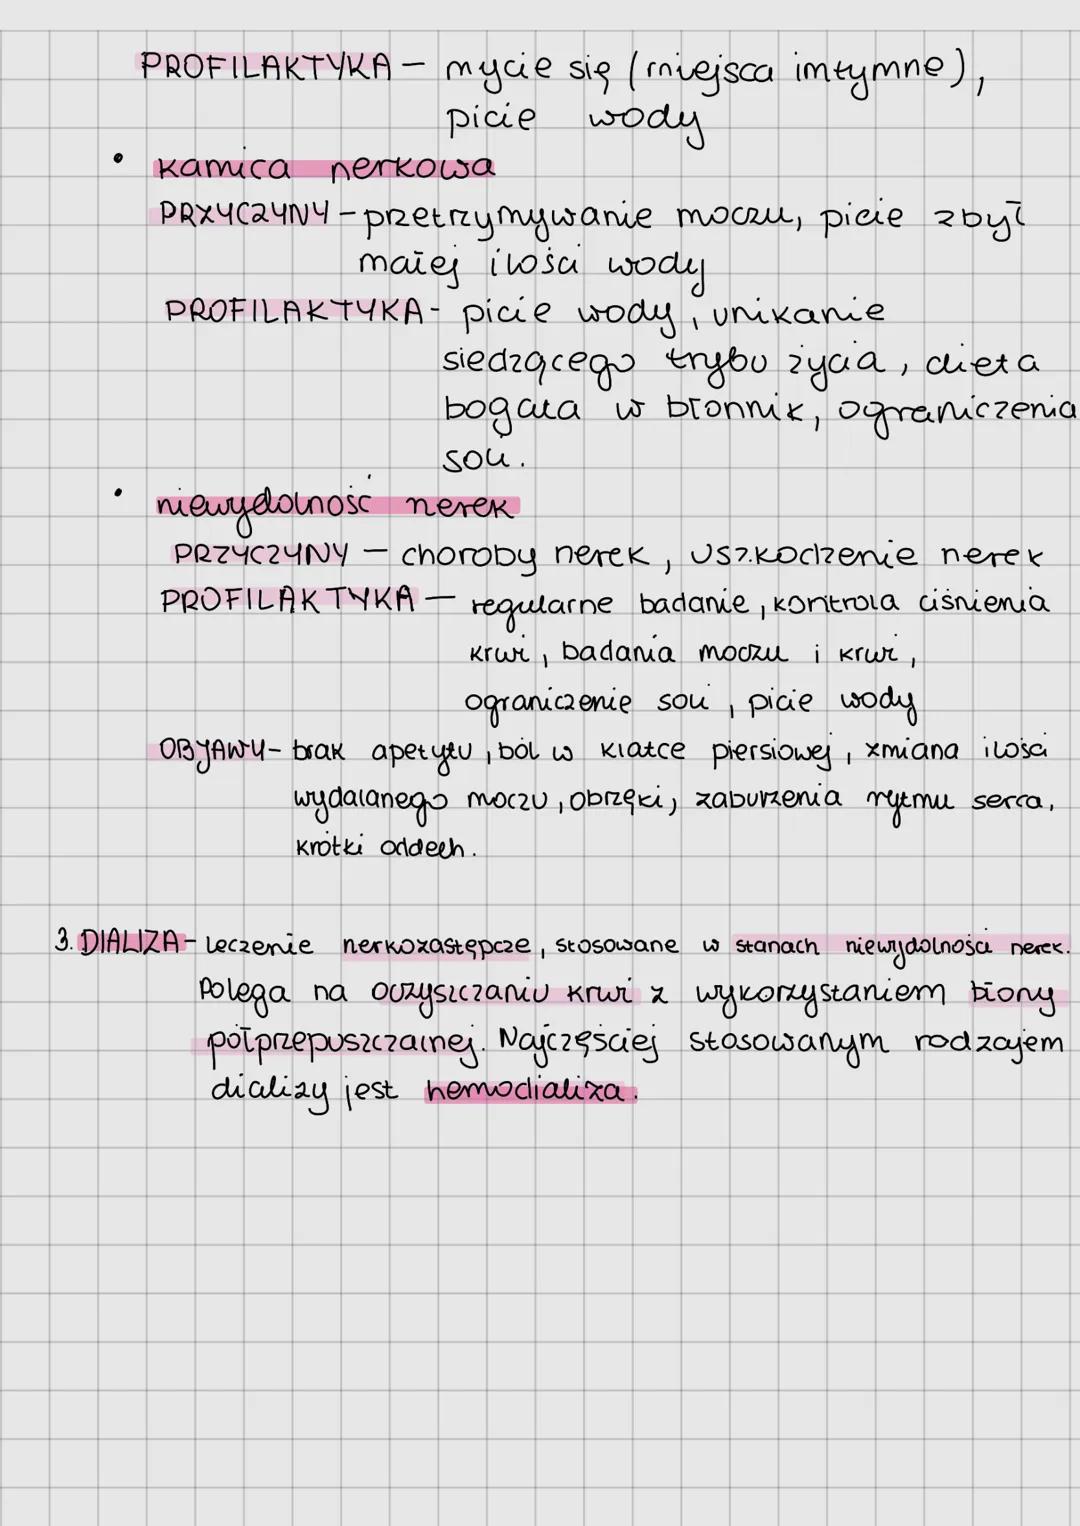 PROFILAKTYKA – mycie się (miejsca intymne),
picie wody
• kamica nerkowa
PRZYCZYNY – przetrzymywanie moczu, picie zbyt
małej ilości wody
PROFILAKTYKA - picie wody, unikanie
siedzącego trybu życia, dieta
bogata w błonnik, ograniczenia
soli.
• niewydolność nerek
PRZYCZYNY – choroby nerek, uszkodzenie nerek
PROFILAKTYKA – regularne badanie, kontrola ciśnienia
krwi, badania moczu i krwi,
ograniczenie soli, picie wody
OBJAWY - brak apetytu, ból w klatce piersiowej, zmiana ilości
wydalanego moczu, obrzęki, zaburzenia rytmu serca,
krótki oddech.
3. DIALIZA - leczenie nerkozastępcze, stosowane w stanach niewydolności nerek.
Polega na oczyszczaniu krwi z wykorzystaniem błony
półprzepuszczalnej. Najczęściej stosowanym rodzajem
dializy jest hemodializa.